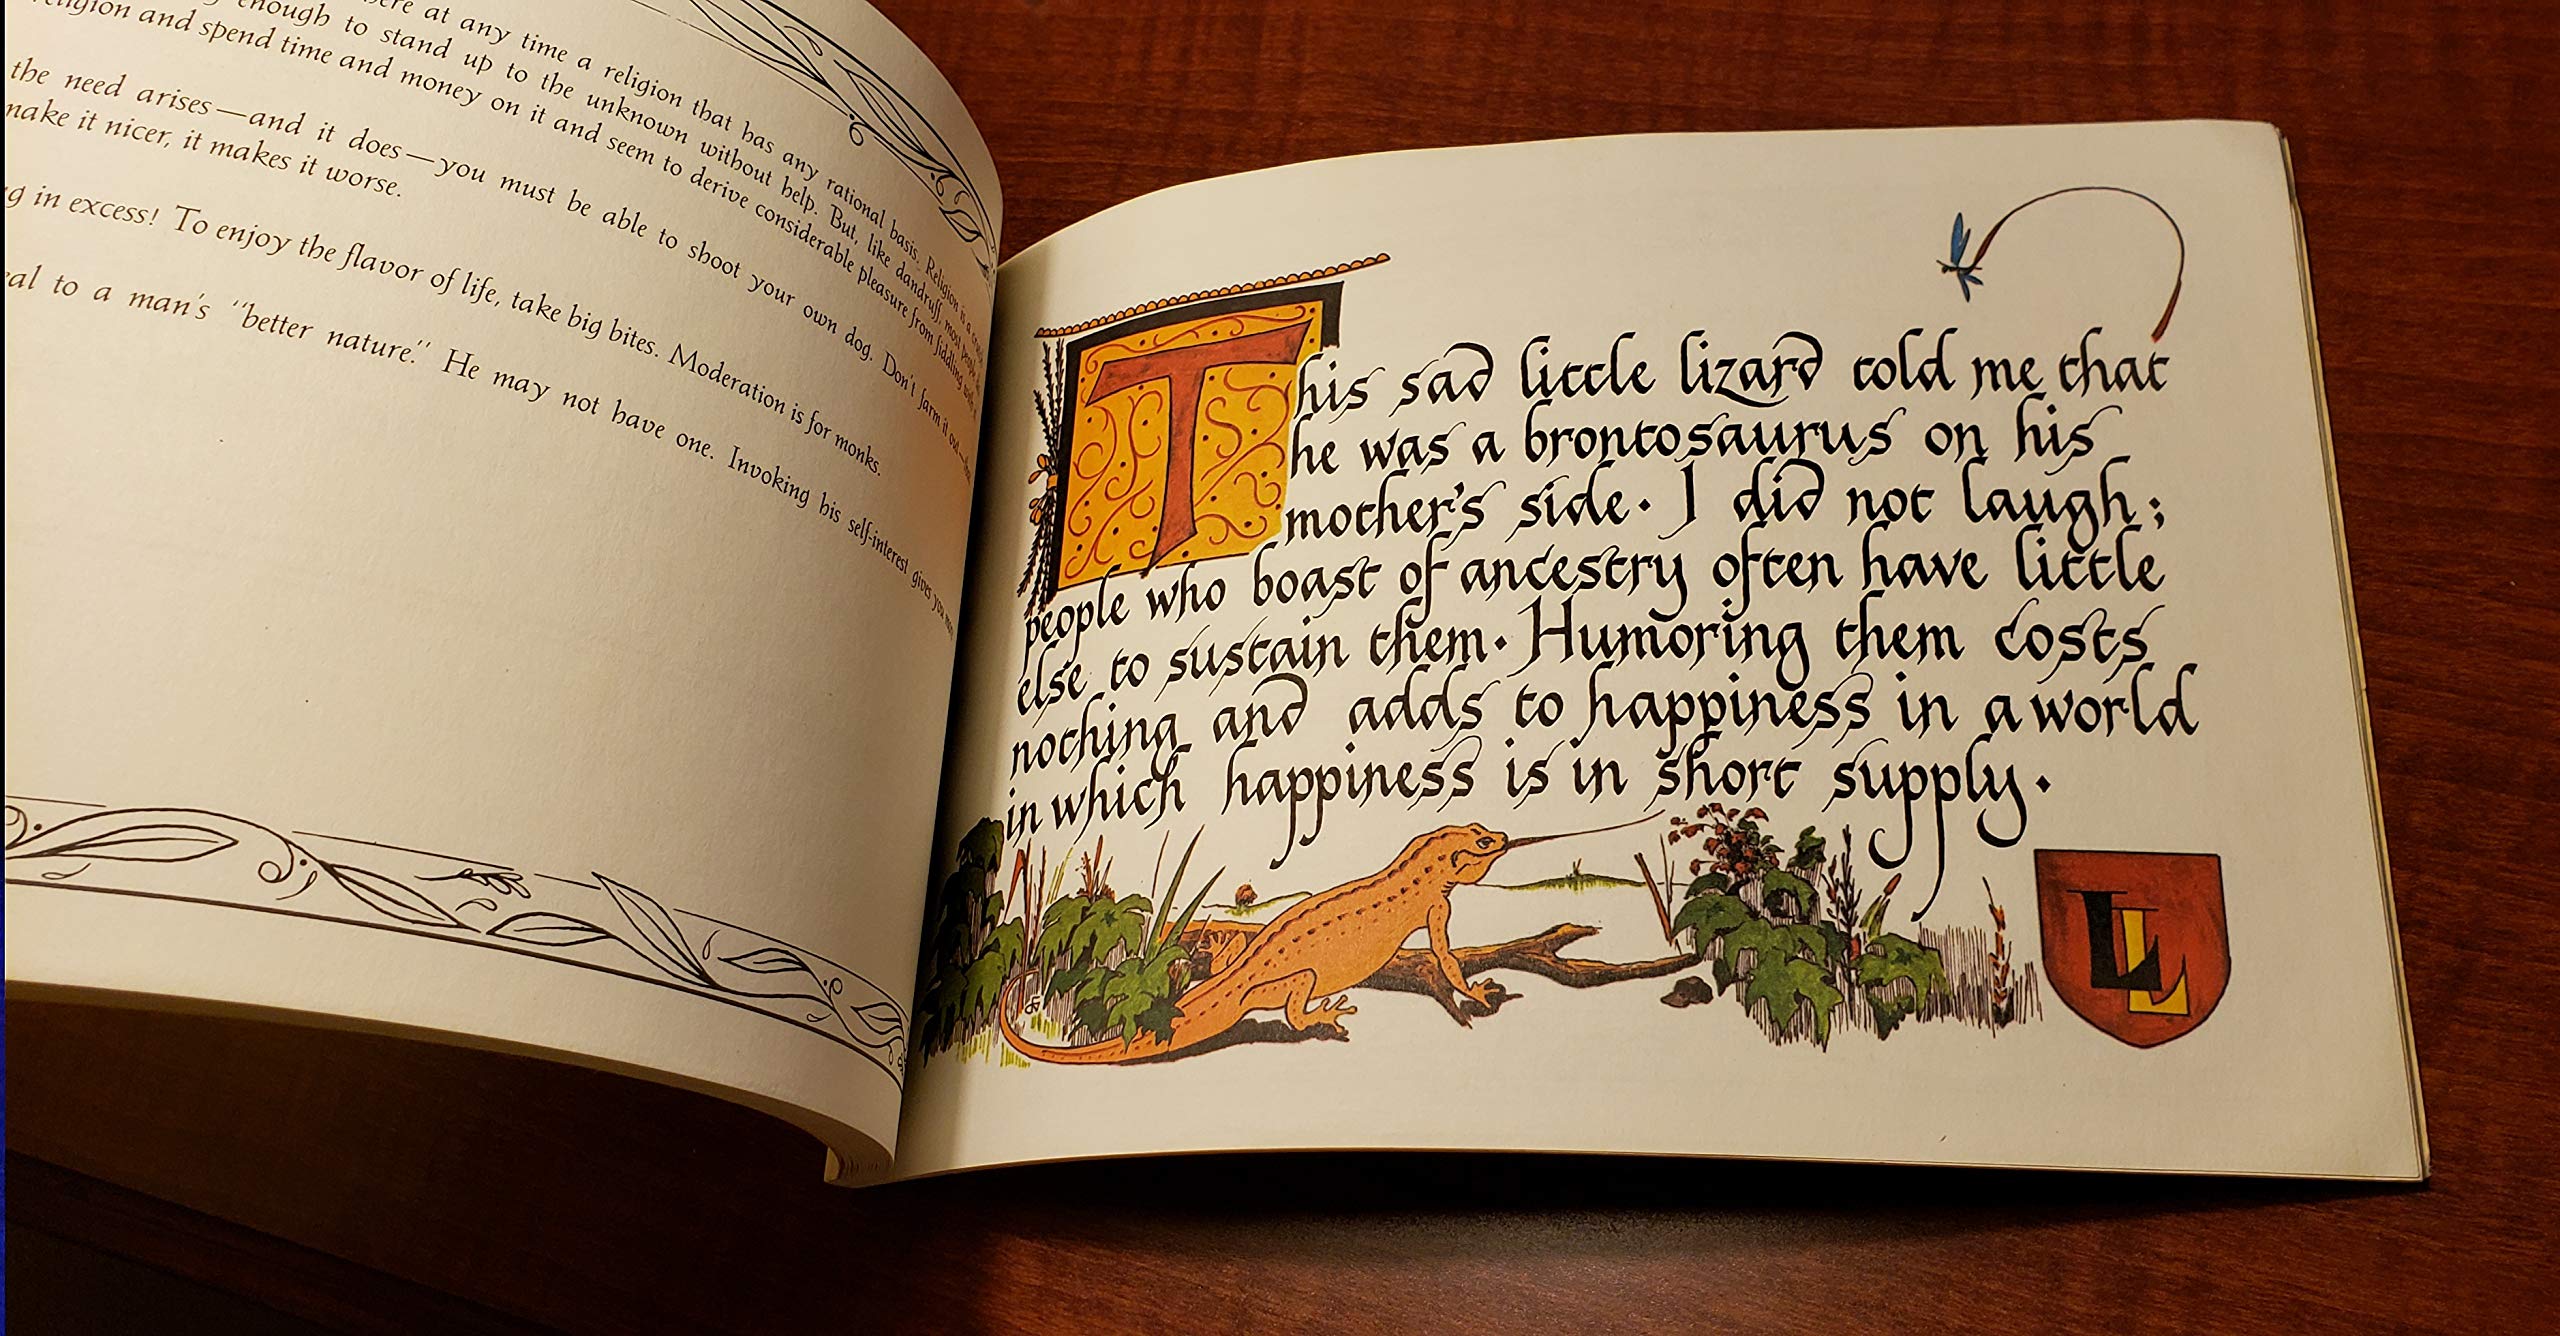 here at any time a religion that has any rational basis. Religion is a crutch
enough to stand up to the unknown without help. But, like dandruff, most people
religion and spend time and money on it and seem to derive considerable pleasure from fiddling with
the need arises—and it does—you must be able to shoot your own dog. Don't farm it out—
make it nicer, it makes it worse.
in excess! To enjoy the flavor of life, take big bites. Moderation is for monks.
to a man's "better nature." He may not have one. Invoking his self-interest gives you
This sad little lizard told me that
he was a brontosaurus on his
mother's side. I did not laugh;
people who boast of ancestry often have little
else to sustain them. Humoring them costs
nothing and adds to happiness in a world
in which happiness is in short supply.
LL